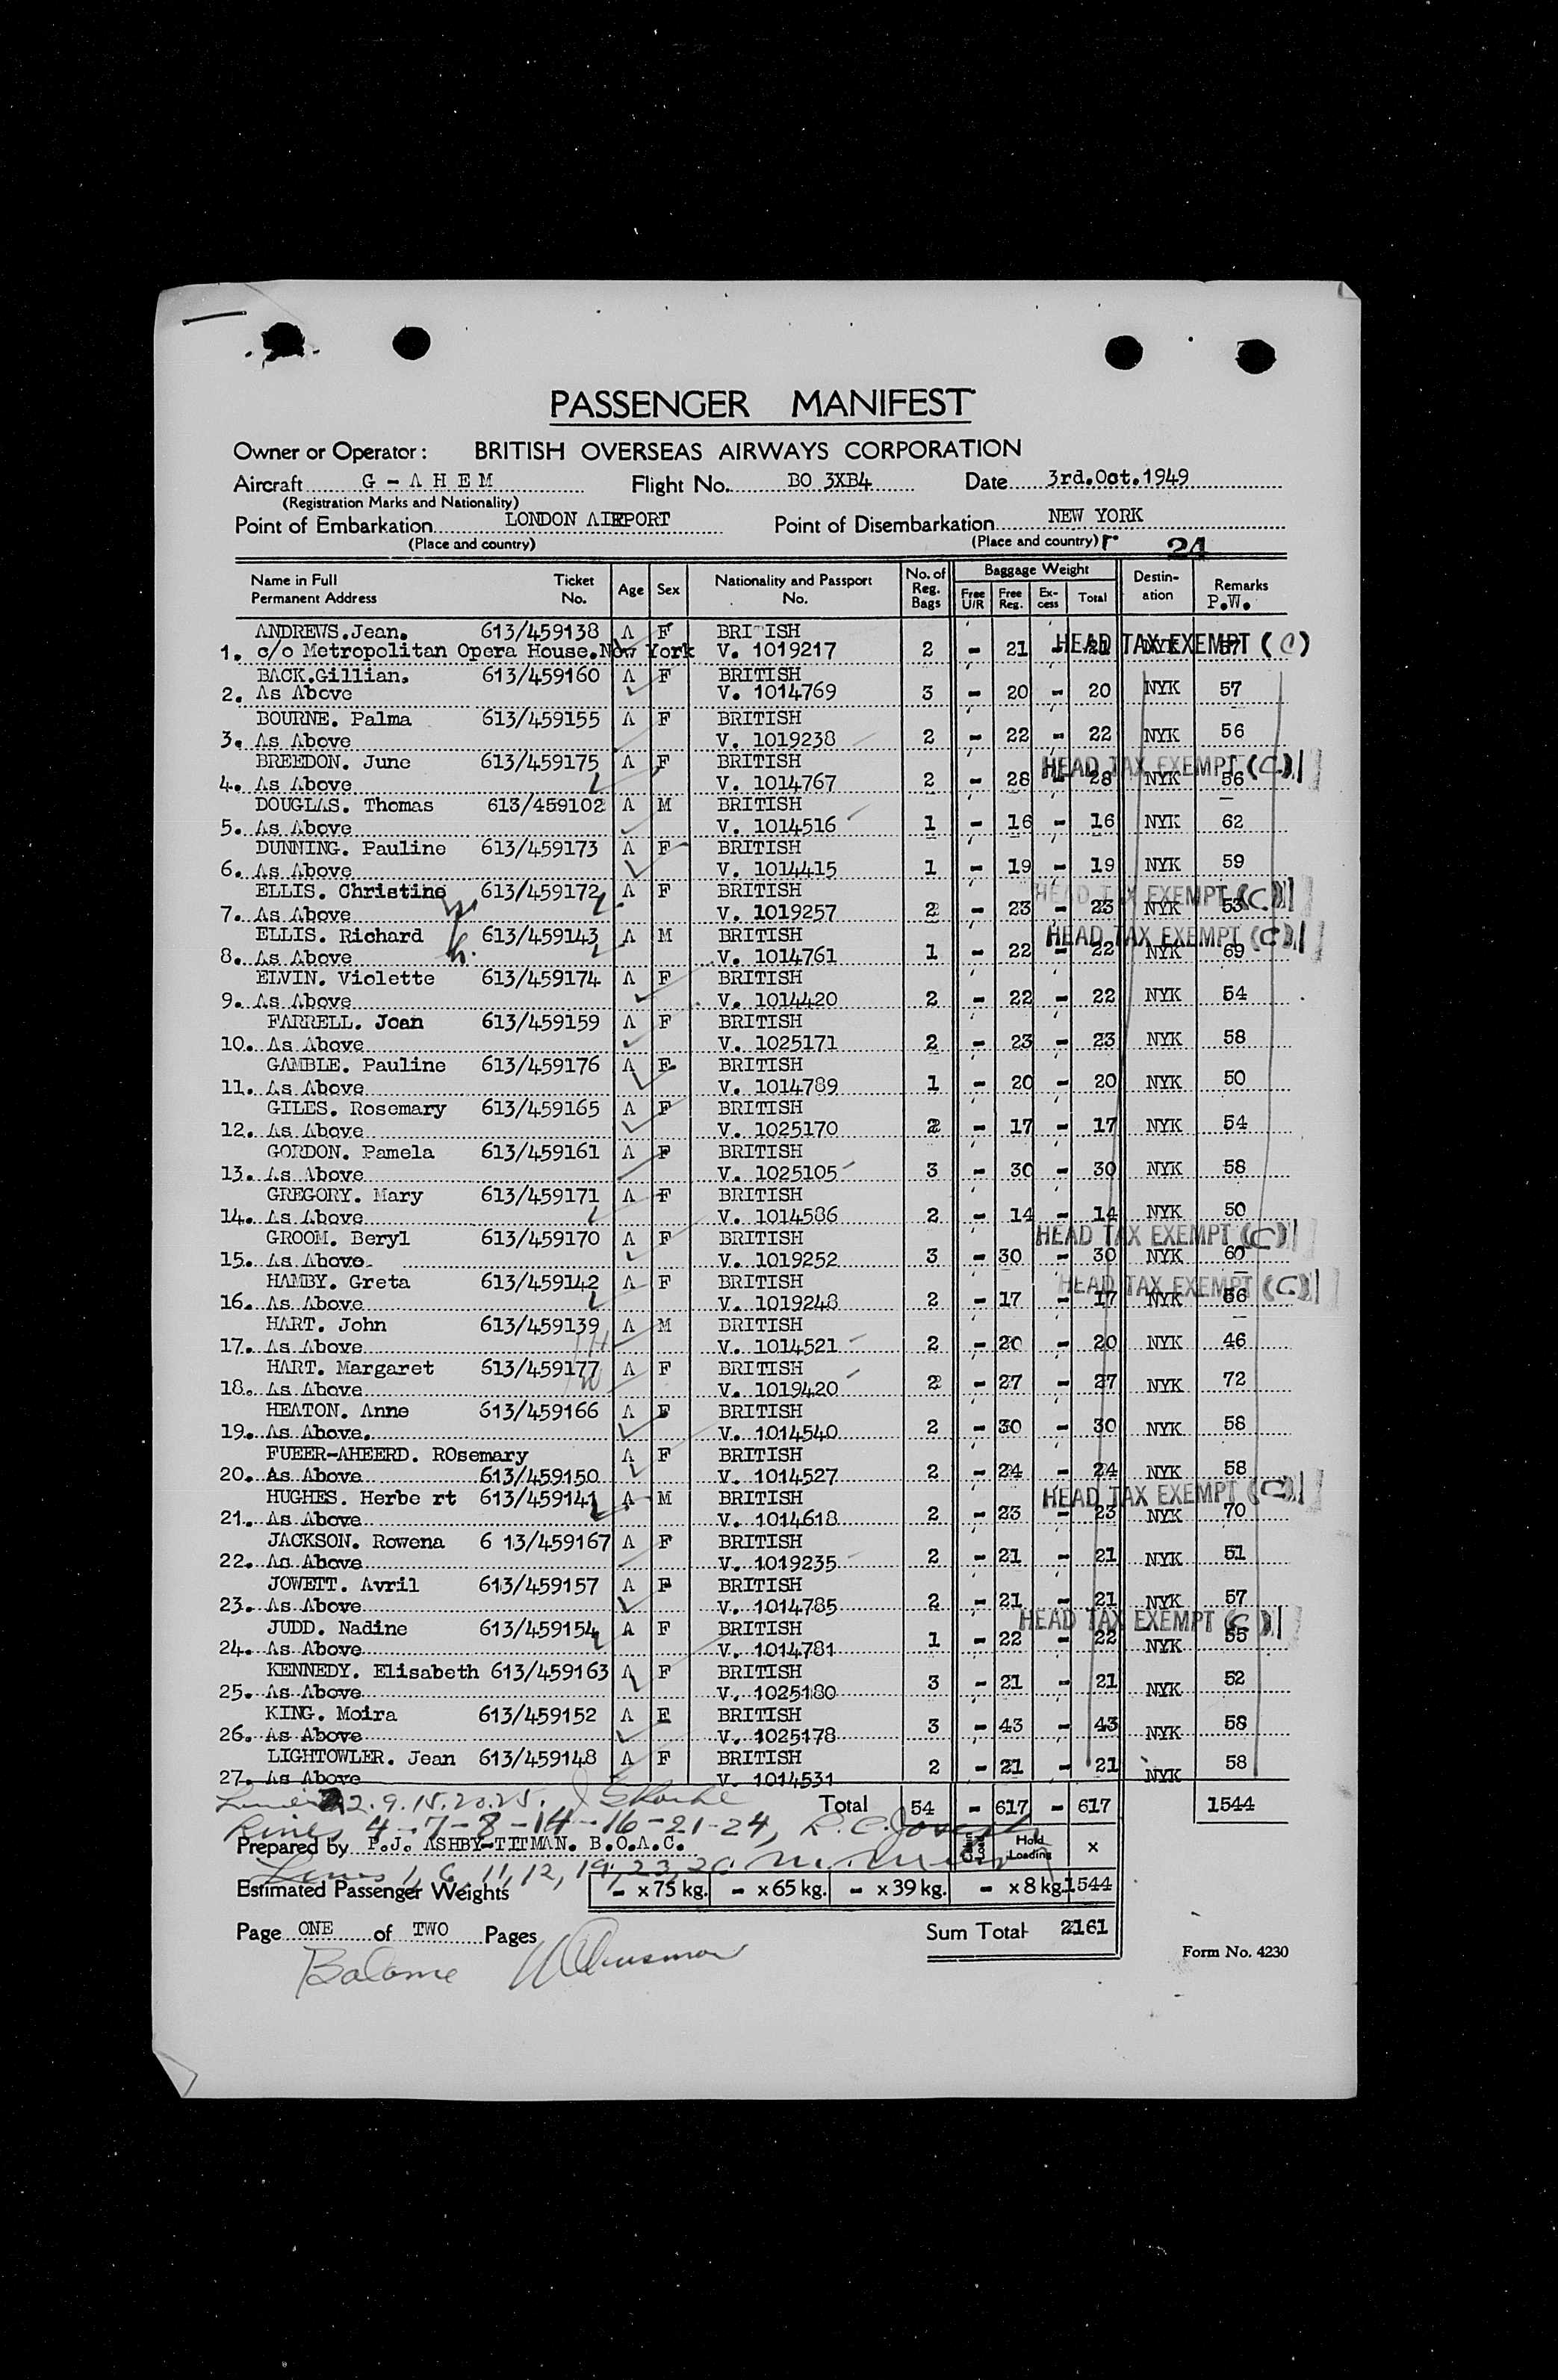 PASSENGER MANIFEST
Owner or Operator: BRITISH OVERSEAS AIRWAYS CORPORATION
Aircraft G - A H E M Flight No. BO 3XB4 Date 3rd.Oct.1949
(Registration Marks and Nationality)
Point of Embarkation LONDON AIRPORT Point of Disembarkation NEW YORK
(Place and country) (Place and country) 24
Name in Full Permanent Address Ticket No. Age Sex Nationality and Passport No. No. of Reg. Bags Baggage Weight Free U/R Free Reg. Ex-cess Total Destin-ation Remarks P.W.
ANDREWS.Jean. 613/459138 A F BRITISH
1. c/o Metropolitan Opera House.New York V. 1019217 2 - 21 - 21 NYK 57 HEAD TAX EXEMPT (C)
BACK.Gillian. 613/459160 A F BRITISH
2. As Above V. 1014769 3 - 20 - 20 NYK 57
BOURNE. Palma 613/459155 A F BRITISH
3. As Above V. 1019238 2 - 22 - 22 NYK 56
BREEDON. June 613/459175 A F BRITISH HEAD TAX EXEMPT (C)
4. As Above V. 1014767 2 - 28 - 28 NYK 56
DOUGLAS. Thomas 613/459102 A M BRITISH
5. As Above V. 1014516 1 - 16 - 16 NYK 62
DUNNING. Pauline 613/459173 A F BRITISH
6. As Above V. 1014415 1 - 19 - 19 NYK 59
ELLIS. Christine 613/459172 A F BRITISH HEAD TAX EXEMPT (C)
7. As Above V. 1019257 2 - 23 - 23 NYK 53
ELLIS. Richard 613/459143 A M BRITISH HEAD TAX EXEMPT (C)
8. As Above V. 1014761 1 - 22 - 22 NYK 69
ELVIN. Violette 613/459174 A F BRITISH
9. As Above V. 1014420 2 - 22 - 22 NYK 54
FARRELL. Joan 613/459159 A F BRITISH
10. As Above V. 1025171 2 - 23 - 23 NYK 58
GAMBLE. Pauline 613/459176 A F BRITISH
11. As Above V. 1014789 1 - 20 - 20 NYK 50
GILES. Rosemary 613/459165 A F BRITISH
12. As Above V. 1025170 2 - 17 - 17 NYK 54
GORDON. Pamela 613/459161 A F BRITISH
13. As Above V. 1025105 3 - 30 - 30 NYK 58
GREGORY. Mary 613/459171 A F BRITISH
14. As Above V. 1014586 2 - 14 - 14 NYK 50
GROOM. Beryl 613/459170 A F BRITISH HEAD TAX EXEMPT (C)
15. As Above. V. 1019252 3 - 30 - 30 NYK 60
HAMBY. Greta 613/459142 A F BRITISH HEAD TAX EXEMPT (C)
16. As Above V. 1019248 2 - 17 - 17 NYK 56
HART. John 613/459139 A M BRITISH
17. As Above V. 1014521 2 - 20 - 20 NYK 46
HART. Margaret 613/459177 A F BRITISH
18. As Above V. 1019420 2 - 27 - 27 NYK 72
HEATON. Anne 613/459166 A F BRITISH
19. As Above. V. 1014540 2 - 30 - 30 NYK 58
FUEER-AHEERD. ROsemary A F BRITISH
20. As Above 613/459150 V. 1014527 2 - 24 - 24 NYK 58
HUGHES. Herbe rt 613/459141 A M BRITISH HEAD TAX EXEMPT (C)
21. As Above V. 1014618 2 - 23 - 23 NYK 70
JACKSON. Rowena 6 13/459167 A F BRITISH
22. As Above V. 1019235 2 - 21 - 21 NYK 51
JOWETT. Avril 613/459157 A F BRITISH
23. As Above V. 1014785 2 - 21 - 21 NYK 57
JUDD. Nadine 613/459154 A F BRITISH HEAD TAX EXEMPT (C)
24. As Above V. 1014781 1 - 22 - 22 NYK 55
KENNEDY. Elisabeth 613/459163 A F BRITISH
25. As Above V. 1025180 3 - 21 - 21 NYK 52
KING. Moira 613/459152 A F BRITISH
26. As Above V. 1025178 3 - 43 - 43 NYK 58
LIGHTOWLER. Jean 613/459148 A F BRITISH
27. As Above V. 1014531 2 - 21 - 21 NYK 58
Total 54 - 617 - 617 1544
Lines 4 - 7 - 8 - 14 - 16 - 21 - 24,
Prepared by P.J. ASHBY-TITMAN. B.O.A.C. Hold Loading x
Lines 1, 6, 11, 12, 19, 23,
Estimated Passenger Weights - x 75 kg. - x 65 kg. - x 39 kg. - x 8 kg. 1544
Page ONE of TWO Pages Sum Total 2161
Form No. 4230